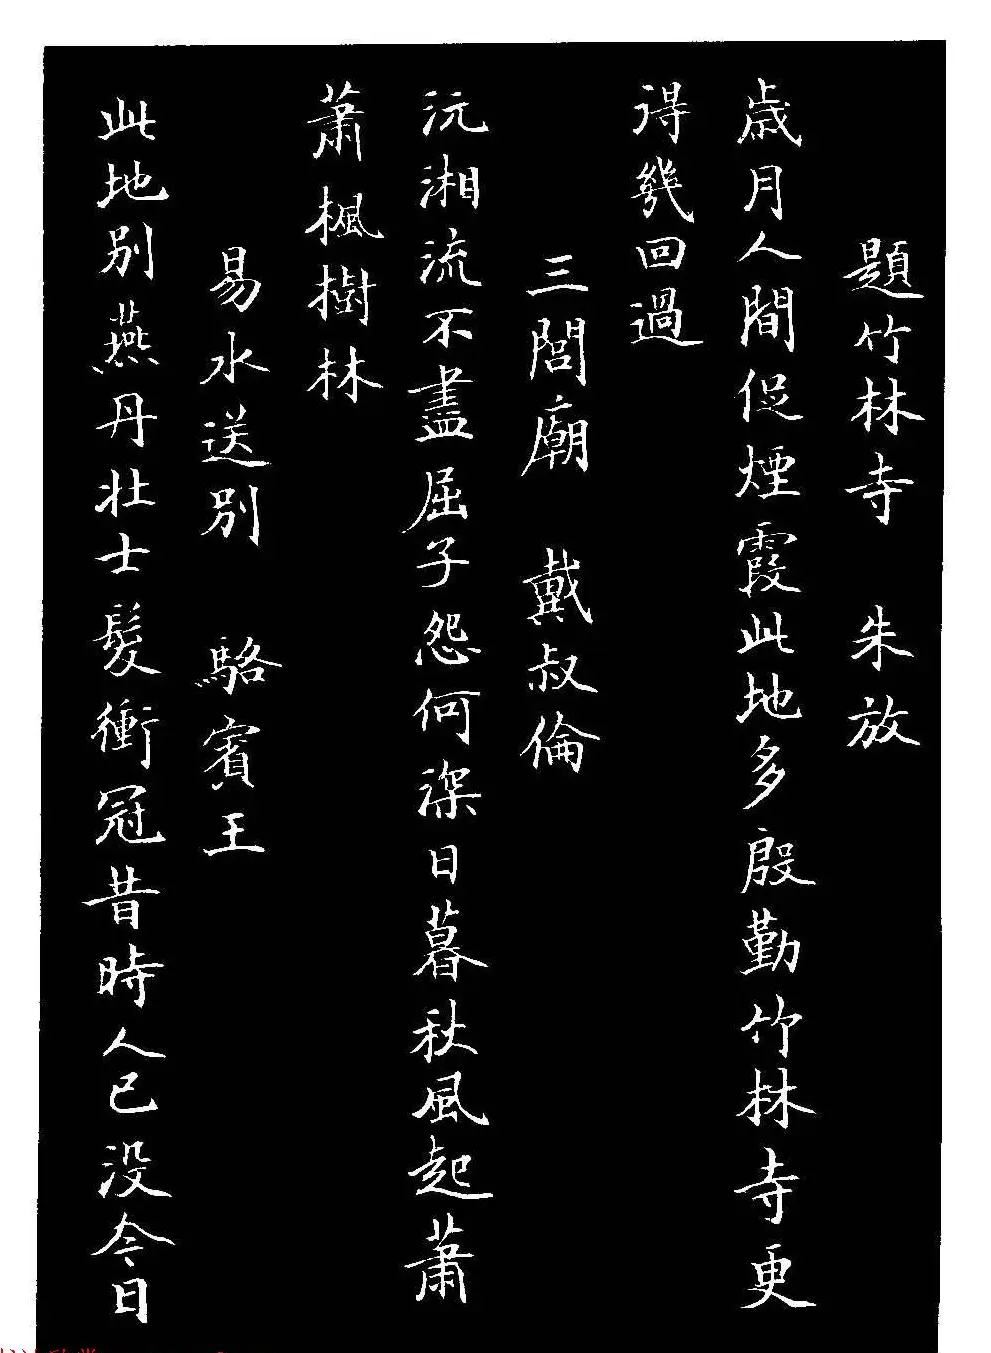 題竹林寺 朱放
歲月人間促煙霞此地多殷勤竹林寺更
得幾回過
三閭廟 戴叔倫
沅湘流不盡屈子怨何深日暮秋風起蕭
蕭楓樹林
易水送別 駱賓王
此地別燕丹壯士髮衝冠昔時人已没今日